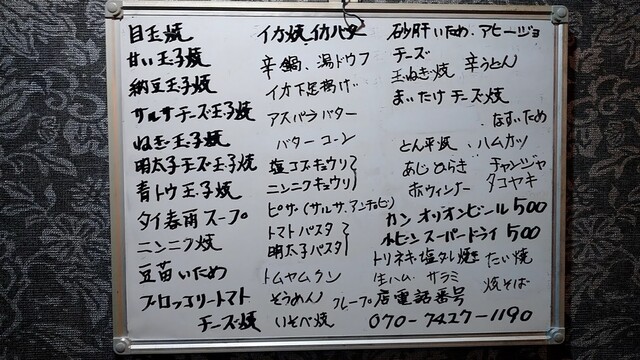 目玉焼
甘い玉子焼
納豆玉子焼
サルサチーズ玉子焼
ねぎ玉子焼
明太子チーズ玉子焼
青トウ玉子焼
タイ春雨スープ
ニンニク焼
豆苗いため
ブロッコリートマト
チーズ焼
イカ焼 イカバター
辛鍋、湯ドウフ
イカ下足揚げ
アスパラバター
バターコーン
塩コブキュウリ
ニンニクキュウリ
ピザ(サルサ、アンチョビ)
トマトパスタ
明太子パスタ
トムヤムクン
そうめん
いそべ焼
砂肝いため、アヒージョ
チーズ
玉ねぎ焼 辛うどん
まいたけチーズ焼
なすいため
とん平焼、ハムカツ
あじひらき チャンジャ
赤ウィンナー タコヤキ
カン オリオンビール 500
小ビン スーパードライ 500
トリネギ塩タレ焼 たい焼
生ハム サラミ 焼そば
クレープ 店電話番号
070-7427-1190